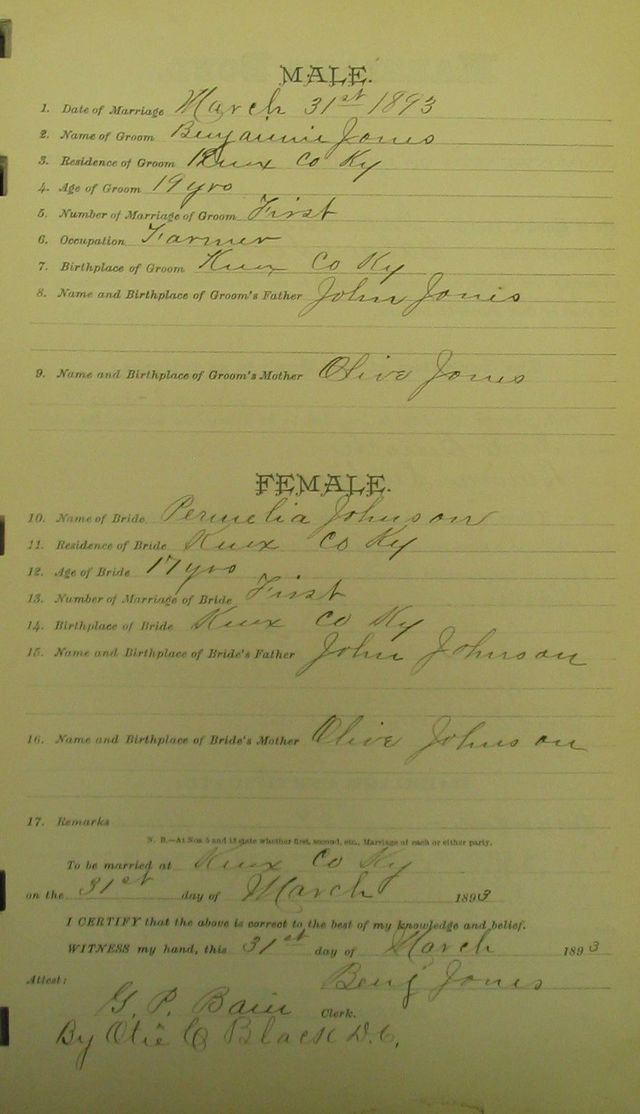 MALE.
1. Date of Marriage March 31st 1893
2. Name of Groom Benjamin Jones
3. Residence of Groom Knox Co Ky
4. Age of Groom 19 yrs
5. Number of Marriage of Groom First
6. Occupation Farmer
7. Birthplace of Groom Knox Co Ky
8. Name and Birthplace of Groom's Father John Jones
9. Name and Birthplace of Groom's Mother Olive Jones
FEMALE.
10. Name of Bride Permelia Johnson
11. Residence of Bride Knox Co Ky
12. Age of Bride 17 yrs
13. Number of Marriage of Bride First
14. Birthplace of Bride Knox Co Ky
15. Name and Birthplace of Bride's Father John Johnson
16. Name and Birthplace of Bride's Mother Olive Johnson
17. Remarks
N. B.—At Nos 5 and 13 state whether first, second, etc., Marriage of each or either party.
To be married at Knox Co Ky
on the 31st day of March 1893
I CERTIFY that the above is correct to the best of my knowledge and belief.
WITNESS my hand, this 31st day of March 1893
Benj Jones
Attest:
G. P. Bain Clerk.
By Otie Black D.C.